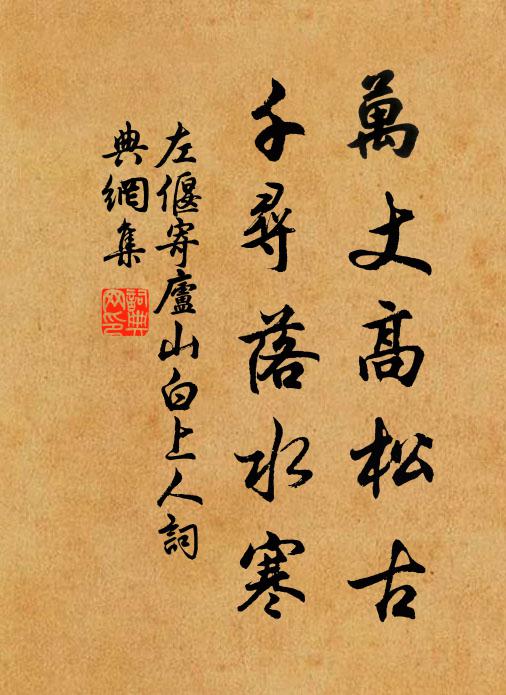 萬丈高松古
千尋落水寒
左偃寄廬山白上人詞
典網集
詞典網印